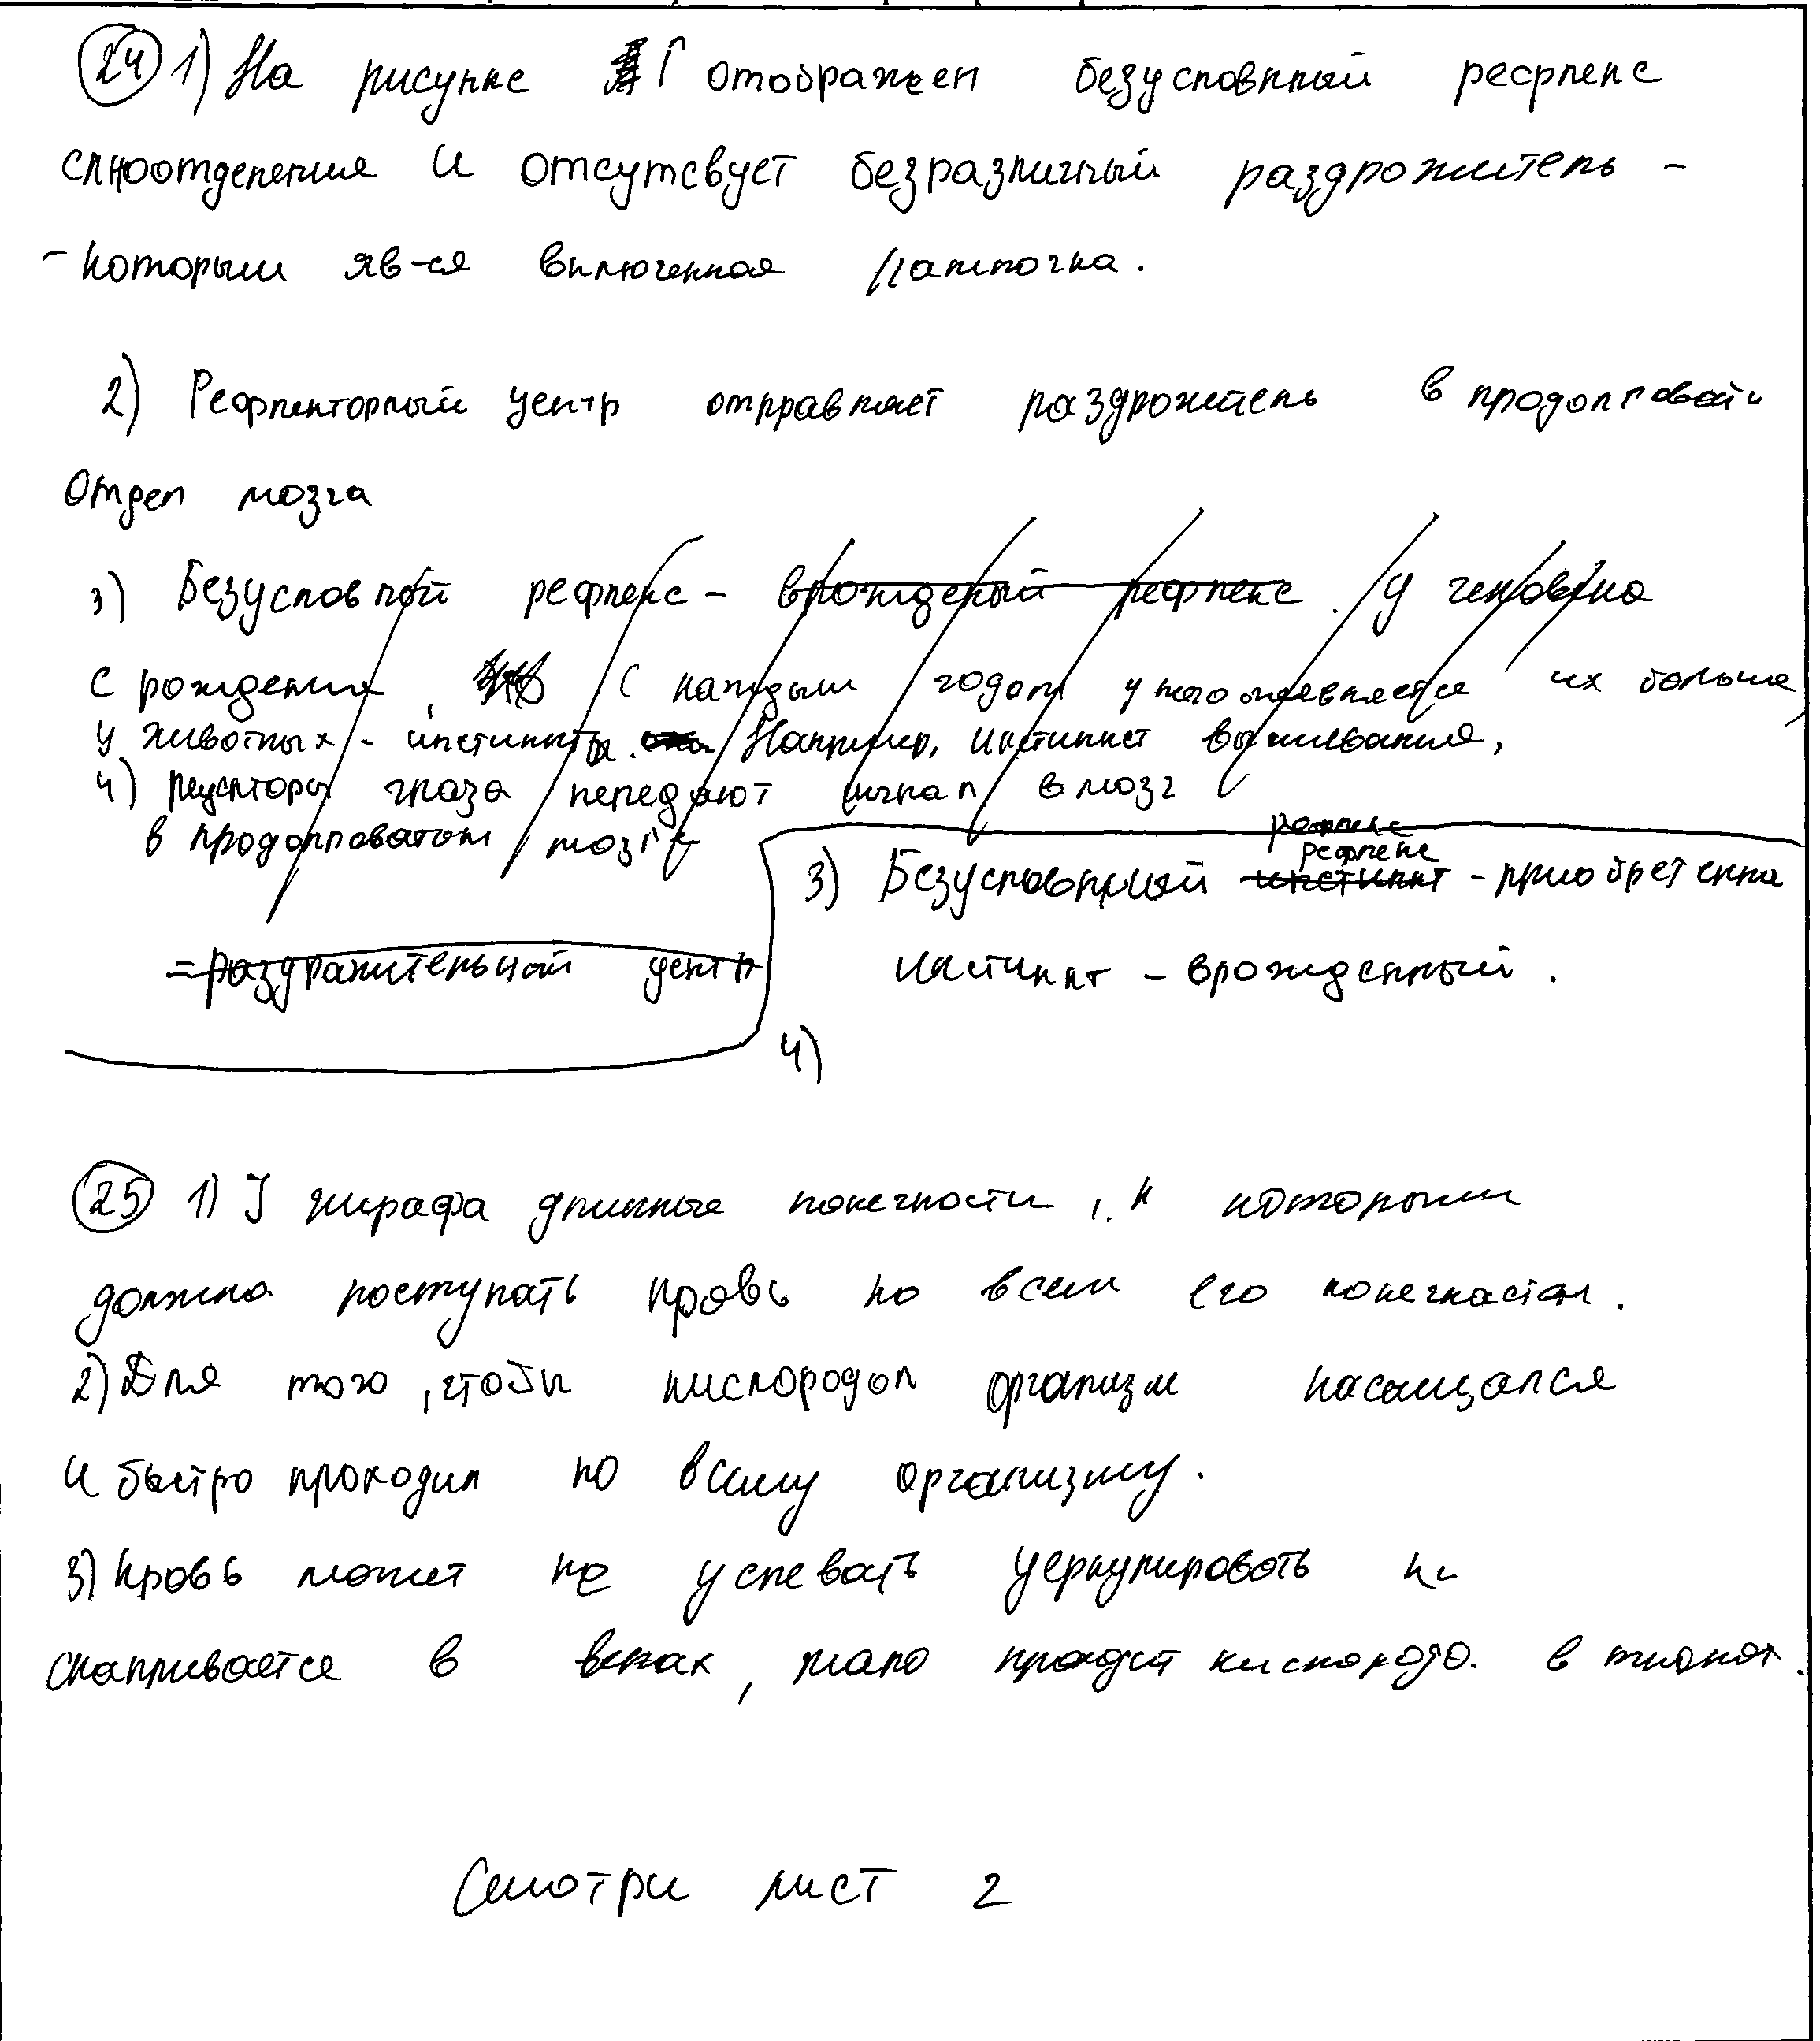 24 1) На рисунке Г отображен безусловный рефлекс
слюоотделения и отсутсвует безразличный раздрожитель -
- которым яв-ся включенная лампочка.
2) Рефлекторный центр отправляет раздрожитель в продолговатый
Отдел мозга
3) Безусловный рефлекс - врожденый рефлекс. у человека
с рождения, с каждым годом у него появляется их больше,
у животных - инстинкты. Например, инстинкт выживания,
4) рецепторы глаза передают сигнал в мозг
в продолговатом мозге
рефлекс
рефлекс
3) Безусловный инстинкт - приобретенна
= раздражительный центр
инстинкт - врожденный.
4)
25 1) У жирафа длинные конечности, к которым
должна поступать кровь по всем его конечностям.
2) Для того, чтобы кислородом организм насыщался
и быстро проходил по всему организму.
3) Кровь может не успевать церкулировать и
скапливается в венах, мало пройдет кислорода в тканях.
Смотри лист 2